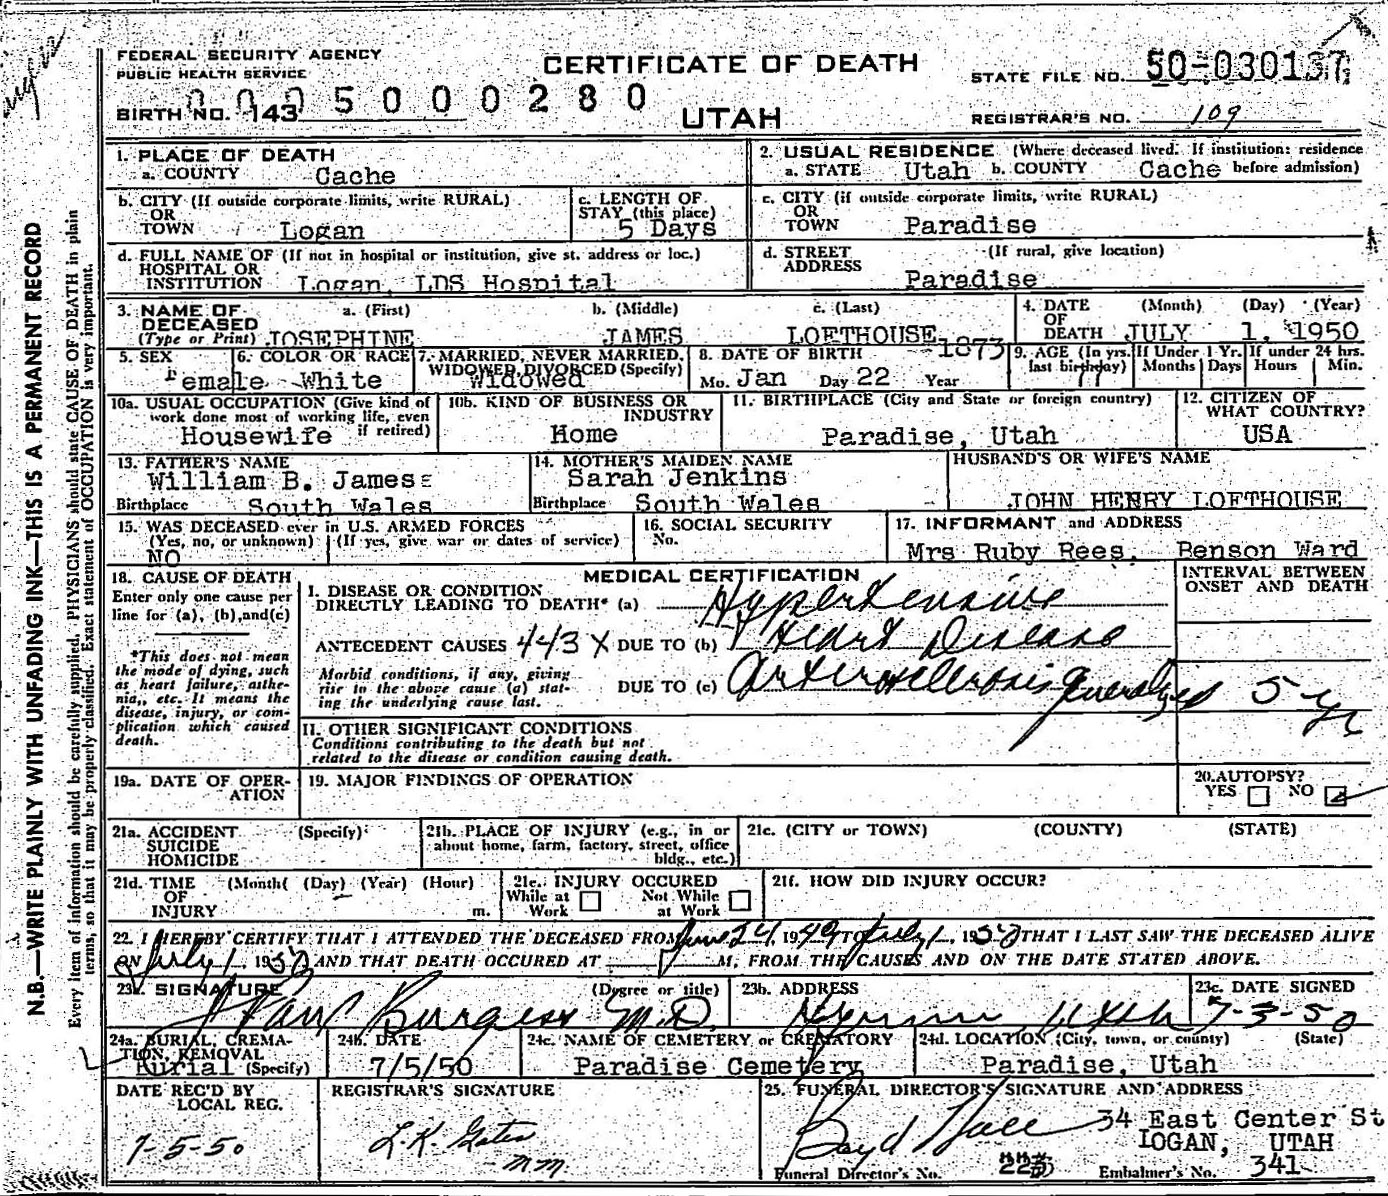 FEDERAL SECURITY AGENCY
PUBLIC HEALTH SERVICE
CERTIFICATE OF DEATH
UTAH
STATE FILE NO. 50-030137
0005000280
BIRTH NO. 143
REGISTRAR'S NO. 109
N.B.—WRITE PLAINLY WITH UNFADING INK—THIS IS A PERMANENT RECORD
Every item of information should be carefully supplied. PHYSICIANS should state CAUSE OF DEATH in plain
terms, so that it may be properly classified. Exact statement of OCCUPATION is very important.
1. PLACE OF DEATH
a. COUNTY Cache
2. USUAL RESIDENCE (Where deceased lived. If institution: residence
a. STATE Utah b. COUNTY Cache before admission)
b. CITY (If outside corporate limits, write RURAL)
OR
TOWN Logan
c. LENGTH OF
STAY (this place)
5 Days
c. CITY (if outside corporate limits, write RURAL)
OR
TOWN Paradise
d. FULL NAME OF (If not in hospital or institution, give st. address or loc.)
HOSPITAL OR
INSTITUTION Logan, LDS Hospital
d. STREET (If rural, give location)
ADDRESS Paradise
3. NAME OF a. (First) b. (Middle) c. (Last)
DECEASED
(Type or Print) JOSEPHINE JAMES LOFTHOUSE
4. DATE (Month) (Day) (Year)
OF
DEATH JULY 1, 1950
5. SEX
Female
6. COLOR OR RACE
White
7. MARRIED, NEVER MARRIED,
WIDOWED, DIVORCED (Specify)
Widowed
8. DATE OF BIRTH 1873
Mo. Jan Day 22 Year
9. AGE (In yrs. If Under 1 Yr. If under 24 hrs.
last birthday) Months Days Hours Min.
77
10a. USUAL OCCUPATION (Give kind of
work done most of working life, even
Housewife if retired)
10b. KIND OF BUSINESS OR
INDUSTRY
Home
11. BIRTHPLACE (City and State or foreign country)
Paradise, Utah
12. CITIZEN OF
WHAT COUNTRY?
USA
13. FATHER'S NAME
William B. James
Birthplace South Wales
14. MOTHER'S MAIDEN NAME
Sarah Jenkins
Birthplace South Wales
HUSBAND'S OR WIFE'S NAME
JOHN HENRY LOFTHOUSE
15. WAS DECEASED ever in U.S. ARMED FORCES
(Yes, no, or unknown) (If yes, give war or dates of service)
NO
16. SOCIAL SECURITY
No.
17. INFORMANT and ADDRESS
Mrs Ruby Rees, Benson Ward
18. CAUSE OF DEATH
Enter only one cause per
line for (a), (b), and (c)
*This does not mean
the mode of dying, such
as heart failure, asthe-
nia, etc. It means the
disease, injury, or com-
plication which caused
death.
MEDICAL CERTIFICATION
INTERVAL BETWEEN
ONSET AND DEATH
I. DISEASE OR CONDITION
DIRECTLY LEADING TO DEATH* (a) Hypertensive
ANTECEDENT CAUSES 443 X DUE TO (b) Heart Disease
Morbid conditions, if any, giving
rise to the above cause (a) stat-
ing the underlying cause last.
DUE TO (c) Arteriosclerosis generalized 5 yr
II. OTHER SIGNIFICANT CONDITIONS
Conditions contributing to the death but not
related to the disease or condition causing death.
19a. DATE OF OPER-
ATION
19. MAJOR FINDINGS OF OPERATION
20. AUTOPSY?
YES NO
21a. ACCIDENT (Specify)
SUICIDE
HOMICIDE
21b. PLACE OF INJURY (e.g., in or
about home, farm, factory, street, office
bldg., etc.)
21c. (CITY or TOWN) (COUNTY) (STATE)
21d. TIME (Month( (Day) (Year) (Hour)
OF
INJURY m.
21e. INJURY OCCURED
While at Not While
Work at Work
21f. HOW DID INJURY OCCUR?
22. I HEREBY CERTIFY THAT I ATTENDED THE DECEASED FROM June 24, 1949 TO July 1, 1950 THAT I LAST SAW THE DECEASED ALIVE
ON July 1 1950 AND THAT DEATH OCCURED AT M, FROM THE CAUSES AND ON THE DATE STATED ABOVE.
23a. SIGNATURE (Degree or title)
Burgess M.D.
23b. ADDRESS
Hyrum Utah
23c. DATE SIGNED
7-3-50
24a. BURIAL, CREMA-
TION, REMOVAL
Burial (Specify)
24b. DATE
7/5/50
24c. NAME OF CEMETERY or CREMATORY
Paradise Cemetery
24d. LOCATION (City, town, or county) (State)
Paradise, Utah
DATE REC'D BY
LOCAL REG.
7-5-50
REGISTRAR'S SIGNATURE
L.K. Gates
mm
25. FUNERAL DIRECTOR'S SIGNATURE AND ADDRESS
Boyd Hall 34 East Center St
LOGAN, UTAH
Funeral Director's No. Embalmer's No. 341